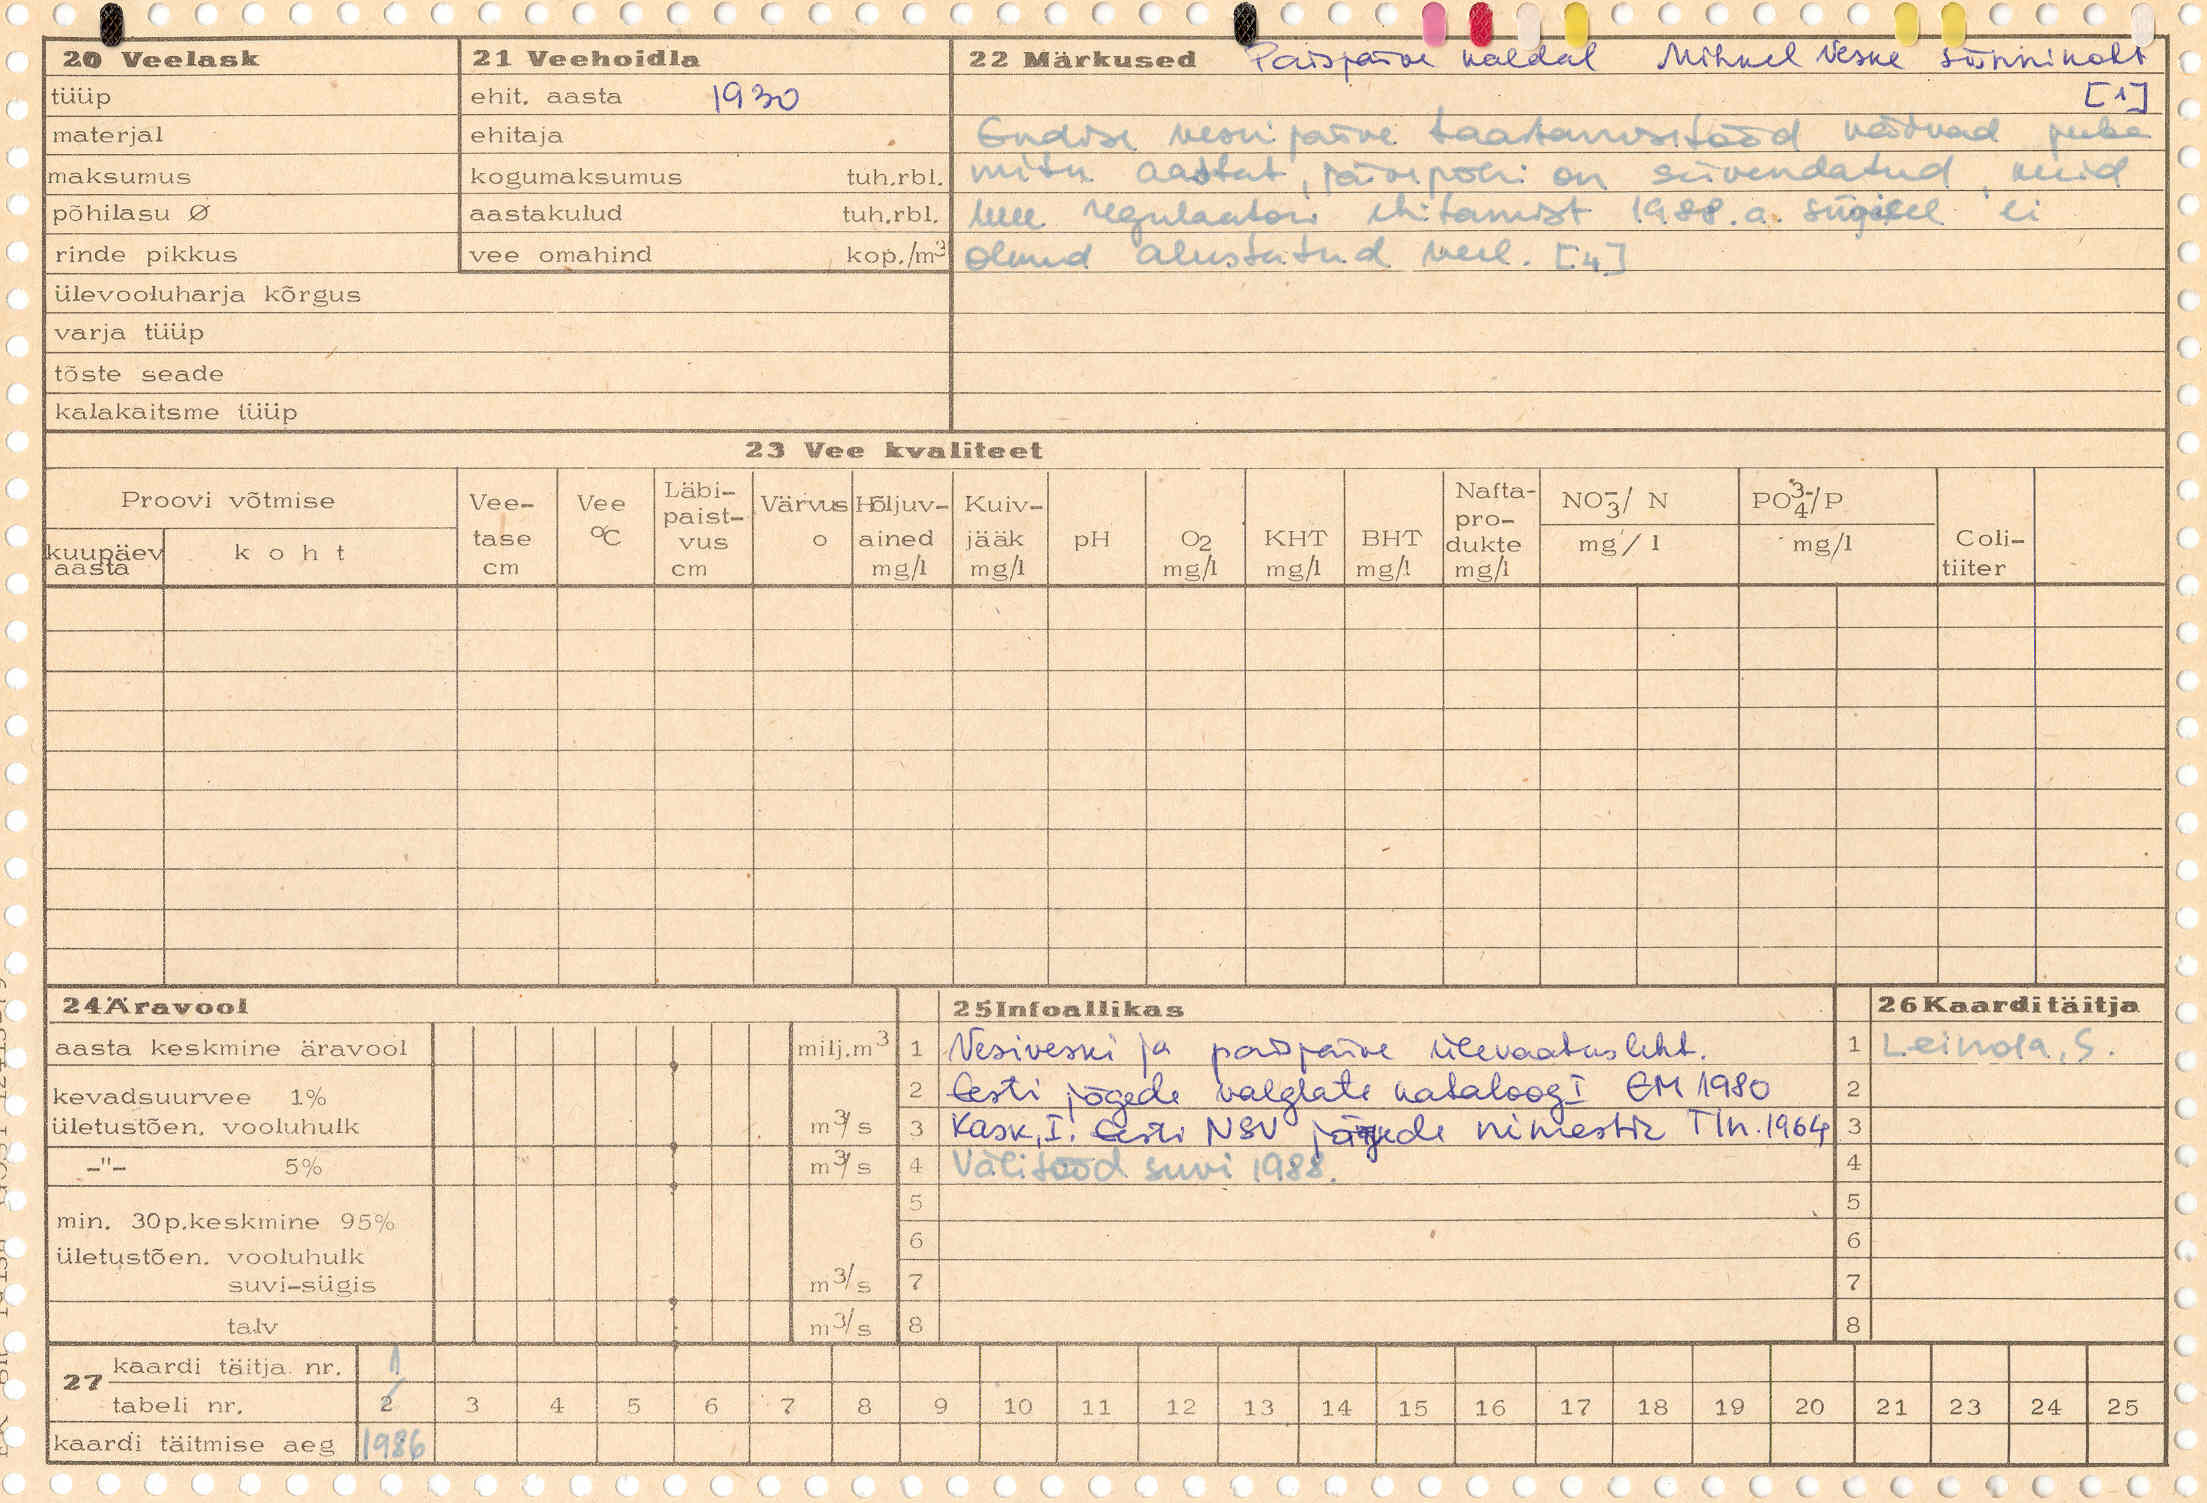 20 Veelask
tüüp
materjal
maksumus
põhilasu Ø
rinde pikkus
ülevooluharja kõrgus
varja tüüp
tõste seade
kalakaitsme tüüp
21 Veehoidla
ehit. aasta 1930
ehitaja
kogumaksumus tuh.rbl.
aastakulud tuh.rbl.
vee omahind kop./m3
22 Märkused Paisjärve kaldal Mihkel Veske sünnikoht
[1]
Endise veskijärve taastamistööd käivad juba
mitu aastat, järvepõhi on süvendatud, kuid
uue regulaatori ehitamist 1988.a. sügisel ei
olnud alustatud veel. [4]
23 Vee kvaliteet
Proovi võtmise
kuupäev aasta
koht
Vee-tase cm
Vee °C
Läbi-paist-vus cm
Värvus o
Hõljuv-ained mg/l
Kuiv-jääk mg/l
pH
O2 mg/l
KHT mg/l
BHT mg/l
Nafta-pro-dukte mg/l
NO3-/ N mg/l
PO4 3-/P mg/l
Coli-tiiter
24 Äravool
aasta keskmine äravool milj.m3
kevadsuurvee 1%
ületustõen. vooluhulk m3/s
-"- 5% m3/s
min. 30p.keskmine 95%
ületustõen. vooluhulk
suvi-sügis m3/s
talv m3/s
25 Infoallikas
1 Vesiveski ja paisjärve ülevaatusleht.
2 Eesti jõgede valglate kataloog I EM 1980
3 Kask, I. Eesti NSV järvede nimestik Tln. 1964
4 Välitööd suvi 1988.
5
6
7
8
26 Kaardi täitja
1 Leinola, S.
2
3
4
5
6
7
8
27
kaardi täitja nr. 1
tabeli nr. 2 3 4 5 6 7 8 9 10 11 12 13 14 15 16 17 18 19 20 21 23 24 25
kaardi täitmise aeg 1986